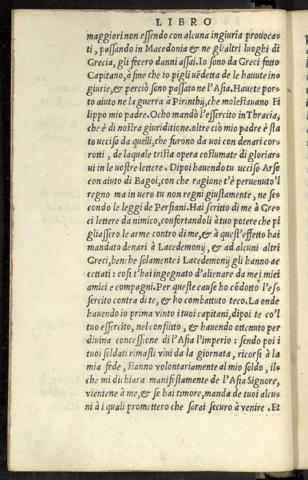 LIBRO
maggiori non essendo con alcuna ingiuria prouocati
ti, passando in Macedonia & ne gli altri luoghi di
Grecia, gli fecero danni assai. Io sono da Greci fatto
Capitano, à fine che to pigli uēdetta de le hauute ingiurie,
giurie, & perciò sono passato ne l'Asia. Hauete porto
sto aiuto ne la guerra à Pirinthij, che molestauano Fi
lippo mio padre. Ocho mandò l'essercito in Thracia,
che è di nostra giuriditione. oltre ciò mio padre è sta
to ucciso da quelli, che furono da uoi con denari cor
rotti, de laquale trista opera costumate di gloriar
ui in le uostre lettere. Dipoi hauendo tu ucciso Arse
con aiuto di Bagoi, con che ragione t'è peruenuto'l
regno ma in uero tu non regni giustamente, ne se
condo le leggi de Persiani. Hai scritto di me à Gre
ci lettere da nimico, confortandoli à tuo potere che pi
gliassero le arme contro di me, & à quest'effetto hai
mandato denari à Lacedemonij, & ad alcuni altri
Greci, benche solamente i Lacedemonij gli hanno ac
cettati: cosi t'hai ingegnato d'alienare da me i miei
amici e compagni. Per queste cause ho cōdotto l'es
sercito contra di te, & ho combattuto teco. La onde
hauendo io prima vinto i tuoi capitani, dipoi te co'l
tuo essercito, nel conflitto, & hauendo ottenuto per
diuina concessione di l'Asia l'imperio: sendo poi i
tuoi soldati rimasti viui da la giornata, ricorsi à la
mia fede, stanno volontariamente al mio soldo, il-
che mi dichiara manifestamente de l'Asia Signore,
vientene à me, & se hai timore, manda de tuoi alcu-
ni à i quali promettero che sarai securo à venire. Et